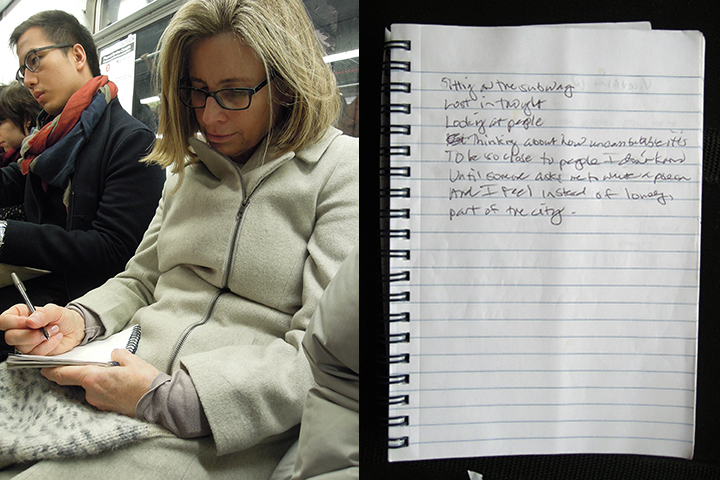 Sitting on the subway
Lost in thought
Looking at people
Thinking about how uncomfortable it is
To be so close to people I don't know
Until someone asks me to write a poem
And I feel instead of lonely,
part of the city.